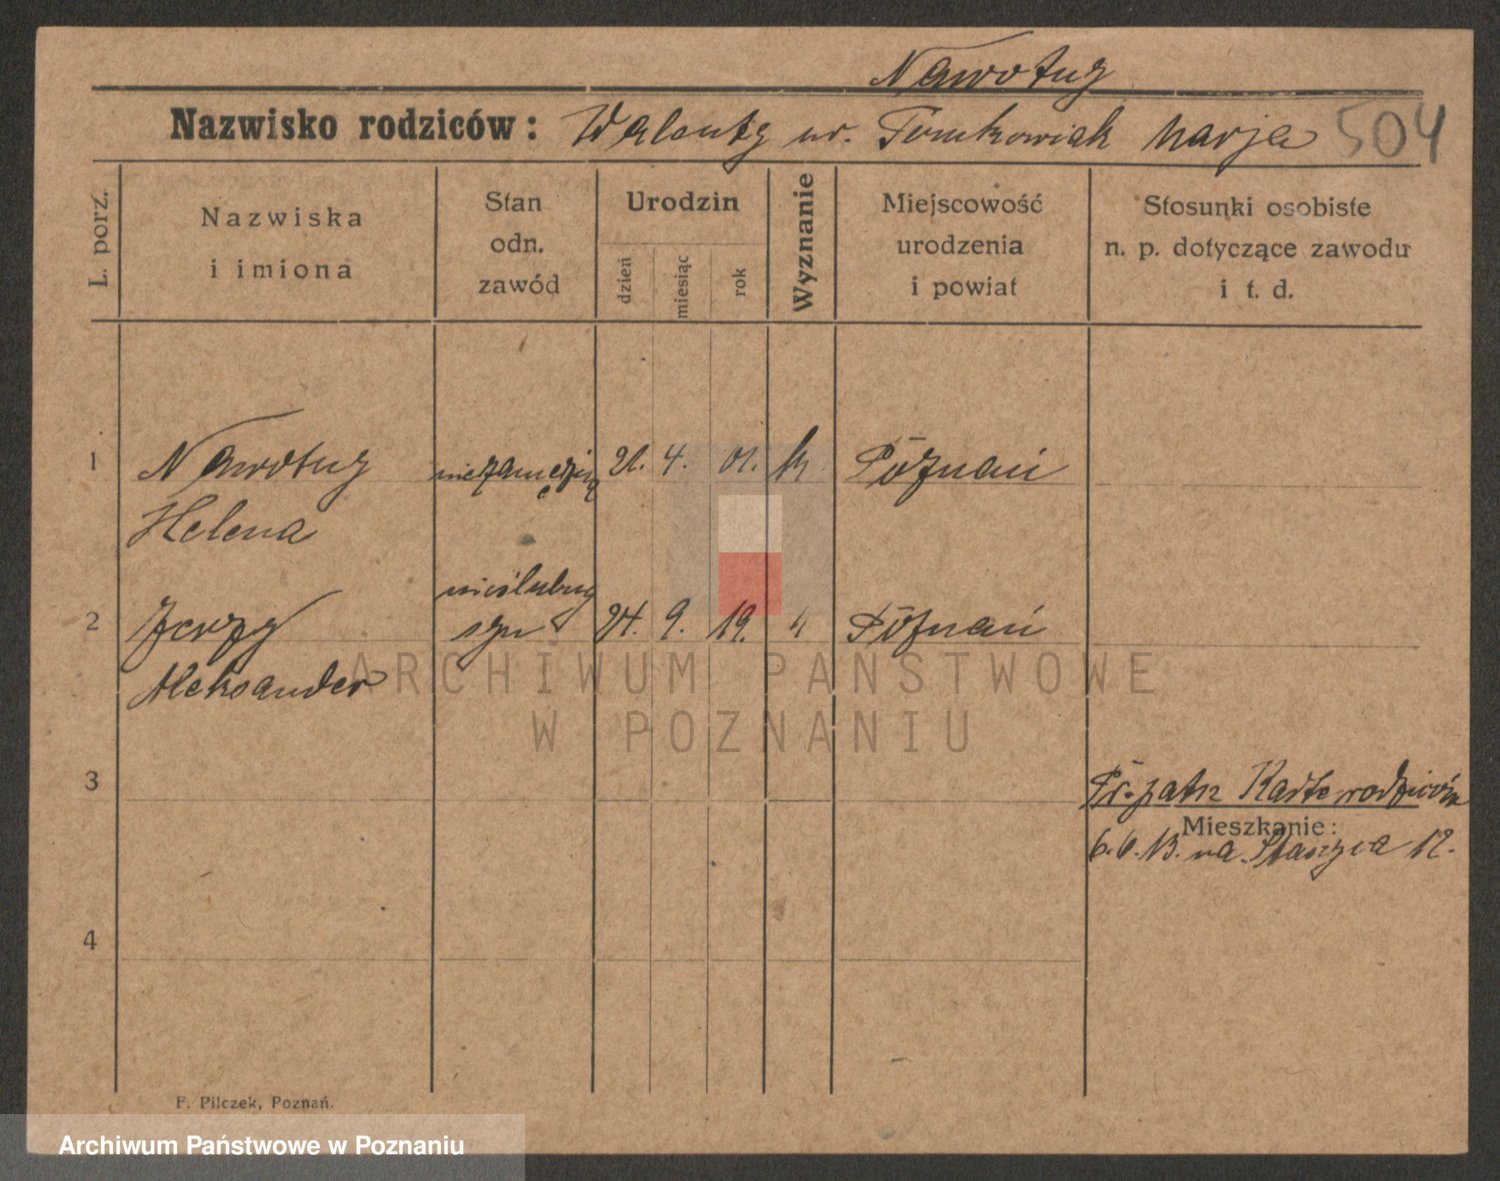 Nawotny
Nazwisko rodziców: Walenty ur. Tomkowiak Marja 504
L. porz.
Nazwiska
i imiona
Stan
odn.
zawód
Urodzin
dzień
miesiąc
rok
Wyznanie
Miejscowość
urodzenia
i powiat
Stosunki osobiste
n. p. dotyczące zawodu
i t. d.
1 Nawotny niezamężna 21. 4. 01. k Poznań
Helena
nieślubny
2 Jerzy syn 24. 9. 19. " Poznań
Aleksander
ARCHIWUM PAŃSTWOWE
W POZNANIU
3 patrz Kartę rodziców
Mieszkanie:
6.6.13. na Staszyca 12.
4
F. Pilczek, Poznań.
Archiwum Państwowe w Poznaniu